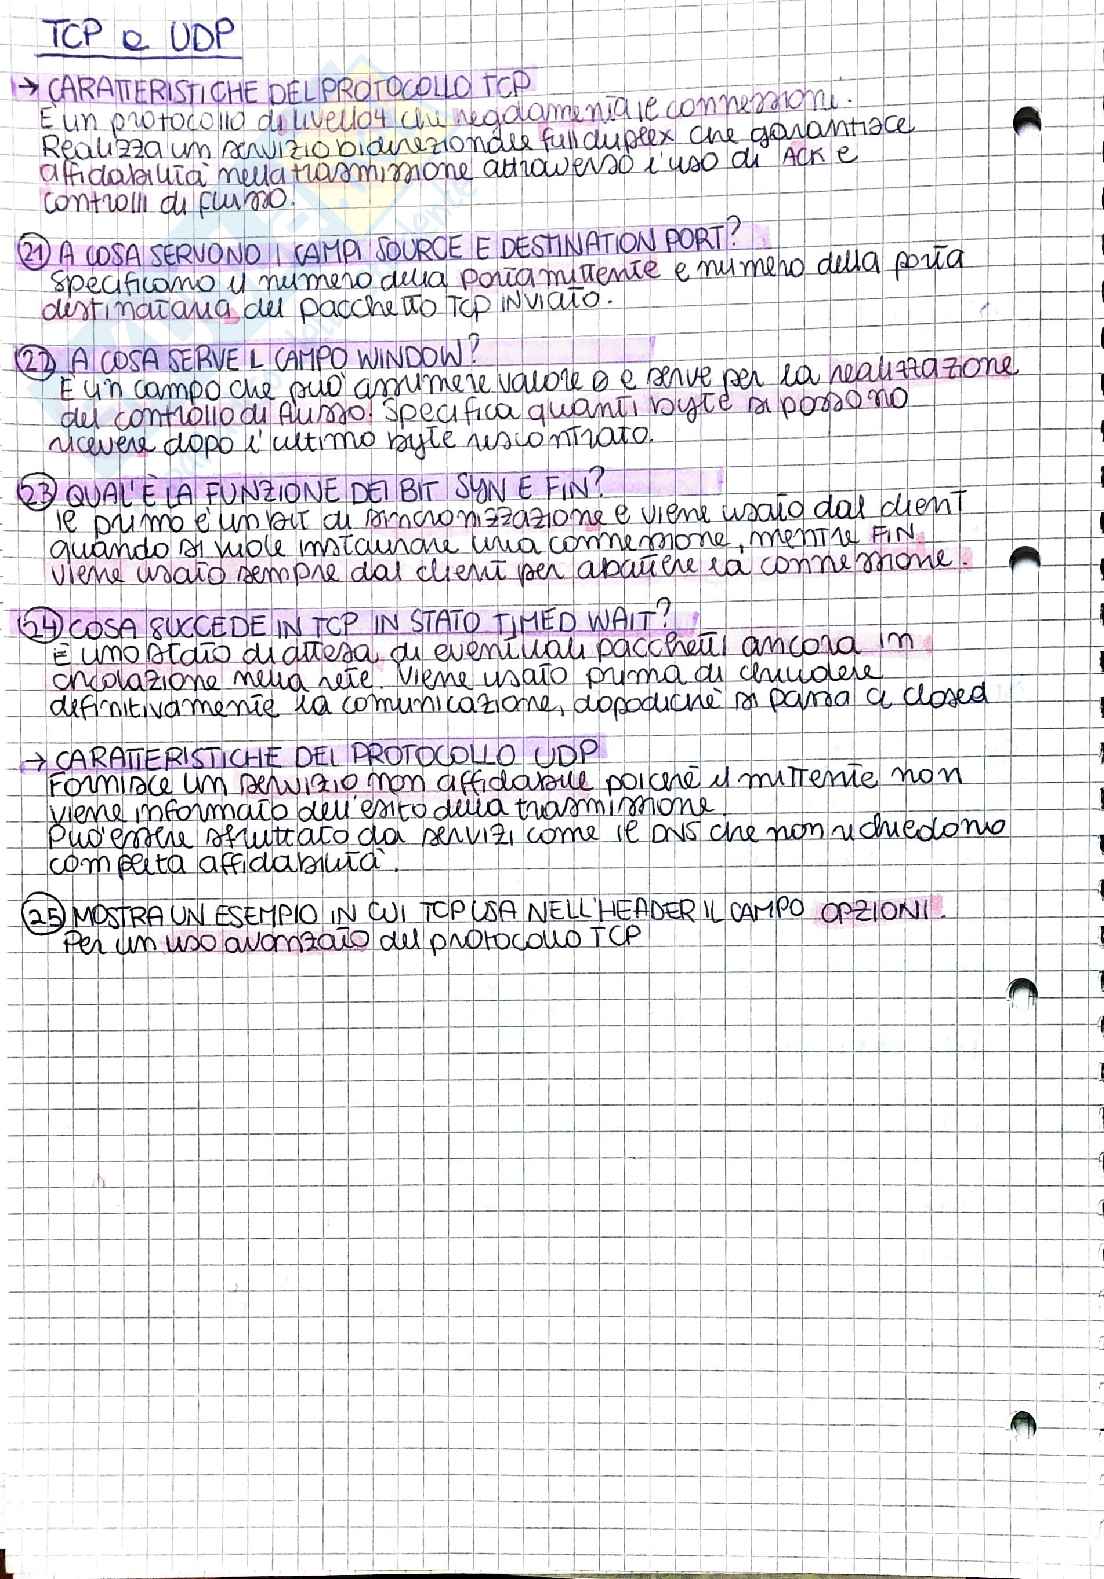 TCP e UDP
→ CARATTERISTICHE DEL PROTOCOLLO TCP
È un protocollo di livello 4 che regolamenta le connessioni.
Realizza un servizio bidirezionale full duplex che garantisce
affidabilità nella trasmissione attraverso l'uso di ACK e
controlli di flusso.
21 A COSA SERVONO I CAMPI SOURCE E DESTINATION PORT?
Specificano il numero della porta mittente e numero della porta
destinataria del pacchetto TCP INVIATO.
22 A COSA SERVE IL CAMPO WINDOW?
È un campo che può assumere valore 0 e serve per la realizzazione
del controllo di flusso. Specifica quanti byte si possono
ricevere dopo l'ultimo byte riscontrato.
23 QUAL'È LA FUNZIONE DEI BIT SYN E FIN?
Il primo è un bit di sincronizzazione e viene usato dal client
quando si vuole instaurare una connessione, mentre FIN
viene usato sempre dal client per abattere la connessione.
24 COSA SUCCEDE IN TCP IN STATO TIMED WAIT?
È uno stato di attesa di eventuali pacchetti ancora in
circolazione nella rete. Viene usato prima di chiudere
definitivamente la comunicazione, dopodiché si passa a closed
→ CARATTERISTICHE DEL PROTOCOLLO UDP
Fornisce un servizio non affidabile poiché il mittente non
viene informato dell'esito della trasmissione
Può essere sfruttato da servizi come il DNS che non richiedono
completa affidabilità.
25 MOSTRA UN ESEMPIO IN CUI TCP USA NELL'HEADER IL CAMPO OPZIONI.
Per un uso avanzato del protocollo TCP